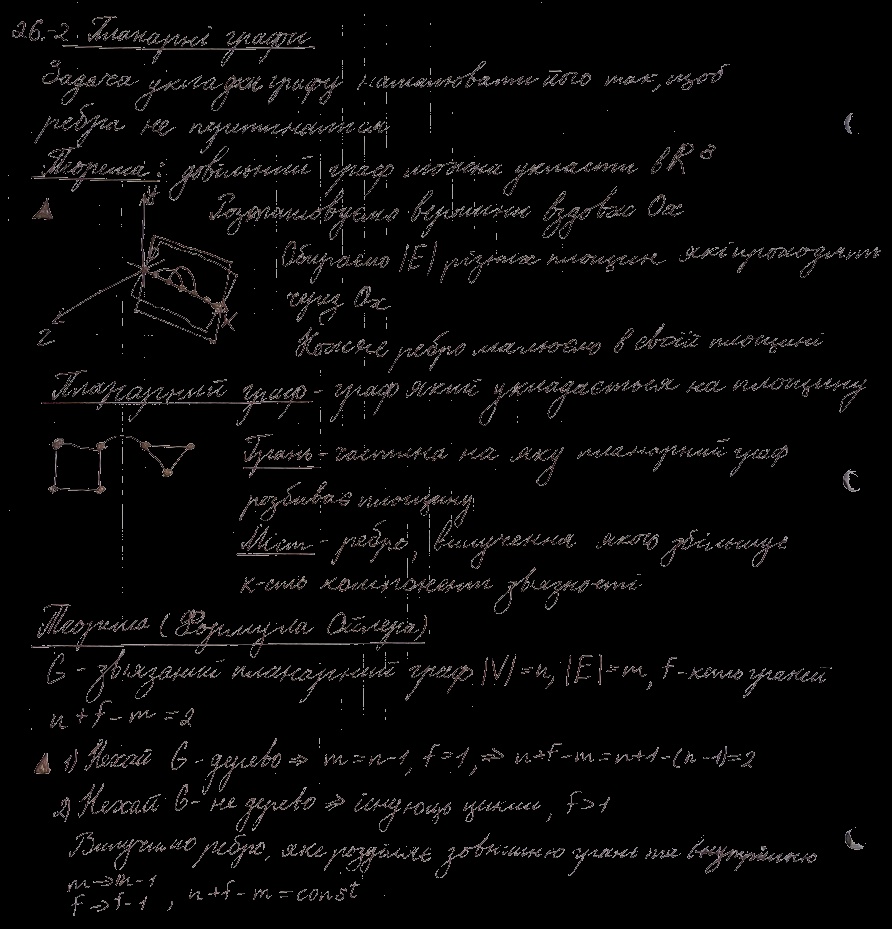 26.-2. Планарні графи
Задача укладки графу намалювати його так, щоб
ребра не перетинались
Теорема: довільний граф можна укласти в R³
Розташовуємо вершини вздовж Ox
y
Обираємо |E| різних площин які проходять
через Ox
z x
Кожне ребро малюємо в своїй площині
Планарний граф - граф який укладається на площину
Грань - частина на яку планарний граф
розбиває площину
Міст - ребро, вилучення якого збільшує
к-сть компонент звязності
Теорема (Формула Ойлера)
G - звязаний планарний граф |V|=n, |E|=m, f-к-сть граней
n+f-m=2
1) Нехай G - дерево ⇒ m=n-1, f=1, ⇒ n+f-m=n+1-(n-1)=2
2) Нехай G - не дерево ⇒ існують цикли, f>1
Вилучимо ребро, яке розділяє зовнішню грань та внутрішню
m→m-1
f→f-1, n+f-m=const